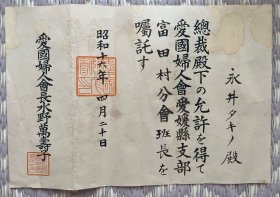 永井タキノ殿
總裁殿下の允許を得て
愛國婦人會愛媛縣支部
富田村分會班長を
囑託す
昭和十六年四月二十日
愛國婦人會長水野萬壽子